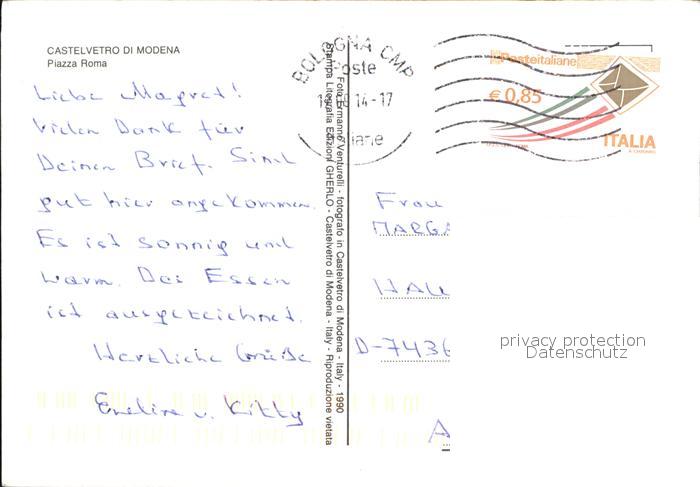 CASTELVETRO DI MODENA
Piazza Roma
Liebe Magret!
Vielen Dank für
Deinen Brief. Sind
gut hier angekommen.
Es ist sonnig und
warm. Das Essen
ist ausgezeichnet.
Herzliche Grüße
Eveline u. Kitty
Foto Ermanno Venturelli - fotografo in Castelvetro di Modena - Italy - 1990
Stampa Litografia Edizioni GHERLO - Castelvetro di Modena - Italy - Riproduzione vietata
BOLOGNA CMP
Poste
14-17
Italiane
Posteitaliane
€ 0,85
ITALIA
Frau
MARGA
HAU
D-7436
A
privacy protection
Datenschutz